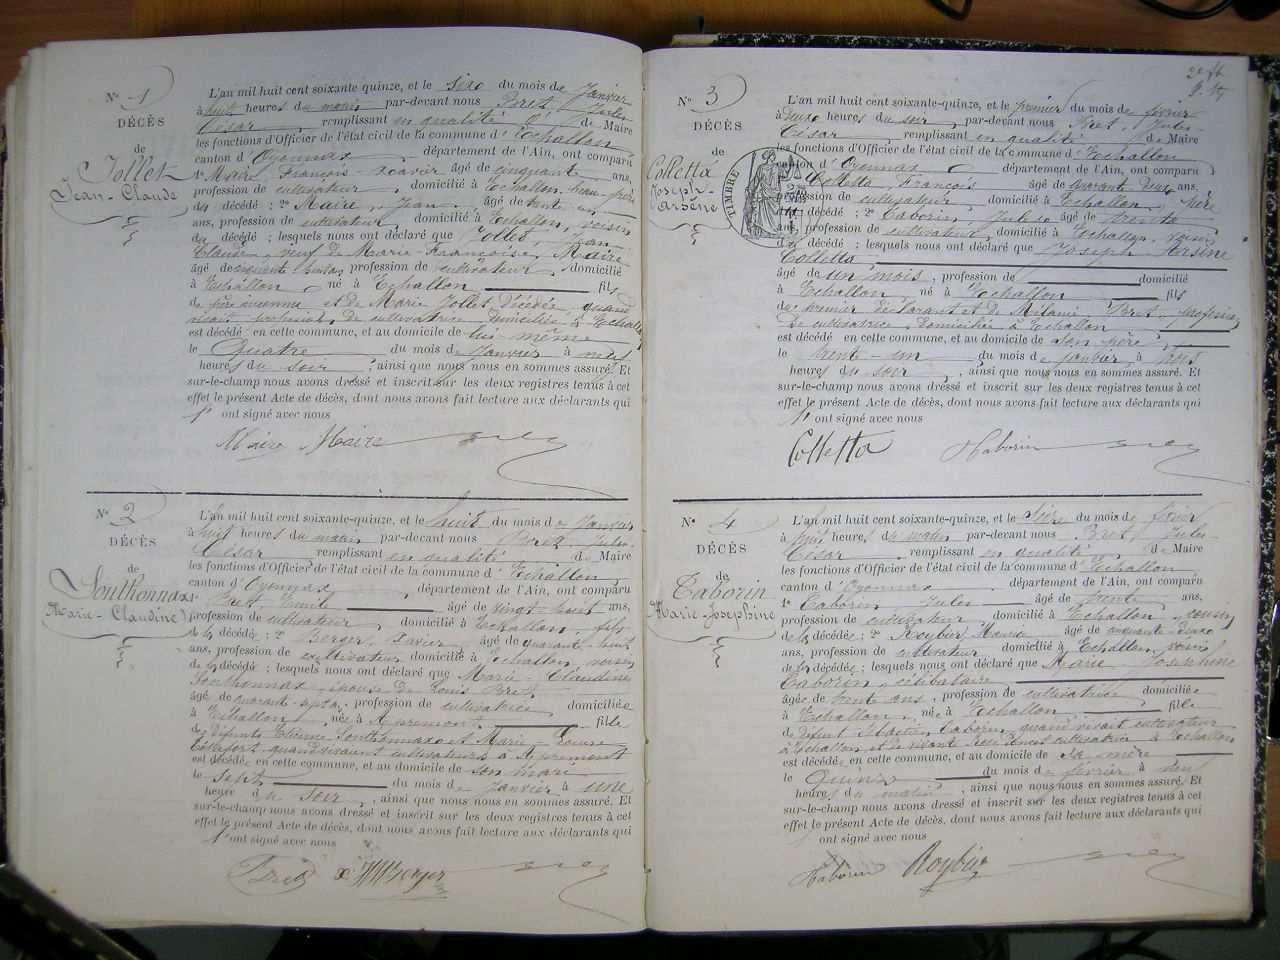 N° 1
DÉCÈS
de
Jollet
Jean-Claude
L'an mil huit cent soixante quinze, et le sixe du mois de Janvier
à huit heures du matin par-devant nous Bret, Jules
César remplissant en qualité d de Maire
les fonctions d'Officier de l'état civil de la commune d'Echallon
canton d'Oyonnax, département de l'Ain, ont comparu
1° Maire, François-Xavier âgé de cinquante ans,
profession de cultivateur, domicilié à Echallon, beau-frère
du décédé ; 2° Maire, Jean âgé de trente un
ans, profession de cultivateur, domicilié à Echallon, voisin
du décédé ; lesquels nous ont déclaré que Jollet, Jean
Claude, veuf de Marie-Françoise, Maire
âgé de cinquante profession de cultivateur, domicilié
à Echallon né à Echallon fils
de père inconnu et de Marie Jollet, Décédée, quand
vivait profession de cultivatrice domiciliée à Echallon
est décédé en cette commune, et au domicile de lui même
le Quatre du mois de Janvier à neuf
heures du soir ; ainsi que nous nous en sommes assuré. Et
sur-le-champ nous avons dressé et inscrit sur les deux registres tenus à cet
effet le présent Acte de décès, dont nous avons fait lecture aux déclarants qui
ont signé avec nous
Maire Maire
N° 2
DÉCÈS
de
Southonnax
Marie-Claudine
L'an mil huit cent soixante-quinze, et le huit du mois de Janvier
à huit heures du matin par-devant nous Bret, Jules-
César remplissant en qualité de Maire
les fonctions d'Officier de l'état civil de la commune d'Echallon
canton d'Oyonnax, département de l'Ain, ont comparu
1° Bret Emile âgé de vingt-huit ans,
profession de cultivateur, domicilié à Echallon, fils
de la décédée ; 2° Berger, Xavier âgé de quarante huit
ans, profession de cultivateur domicilié à Echallon, voisin
de la décédée ; lesquels nous ont déclaré que Marie-Claudine
Southonnax épouse de Louis Bret
âgé de quarante-sept, profession de cultivatrice domiciliée
à Echallon, née à Apremont fille
des défunts Etienne Southonnax et Marie-Louise
quand vivaient cultivateurs à Apremont
est décédée en cette commune, et au domicile de son mari
le sept du mois de Janvier à une
heure du soir, ainsi que nous nous en sommes assuré. Et
sur-le-champ nous avons dressé et inscrit sur les deux registres tenus à cet
effet le présent Acte de décès, dont nous avons fait lecture aux déclarants qui
ont signé avec nous
Bret X Berger
N° 3
DÉCÈS
de
Colletta
Joseph-
Arsène
TIMBRE
L'an mil huit cent soixante-quinze, et le premier du mois de février
à deux heures du soir, par-devant nous Bret, Jules-
César, remplissant en qualité de Maire
les fonctions d'Officier de l'état civil de la commune d'Echallon
canton d'Oyonnax département de l'Ain, ont comparu
Colletta, François âgé de quarante deux ans,
profession de cultivateur domicilié à Echallon, père
du décédé ; 2° Taborin, Jules âgé de trente
ans, profession de cultivateur, domicilié à Echallon, voisin
du décédé ; lesquels nous ont déclaré que Joseph Arsène
Colletta
âgé de un mois, profession de domicilié
à Echallon né à Echallon fils
du premier déclarant et de Mélanie Bret, profession
de cultivatrice, Domiciliée à Echallon
est décédé en cette commune, et au domicile de son père,
le trente-un du mois de janvier à trois
heures du soir, ainsi que nous nous en sommes assuré. Et
sur-le-champ nous avons dressé et inscrit sur les deux registres tenus à cet
effet le présent Acte de décès, dont nous avons fait lecture aux déclarants qui
ont signé avec nous
Colletta Taborin
N° 4
DÉCÈS
de
Taborin
Marie-Josephine
L'an mil huit cent soixante-quinze, et le seize du mois de février
à heures du matin par-devant nous Bret, Jules-
César, remplissant en qualité de Maire
les fonctions d'Officier de l'état civil de la commune d'Echallon
canton d'Oyonnax département de l'Ain, ont comparu
1° Taborin, Jules âgé de trente ans,
profession de cultivateur, domicilié à Echallon, cousin
de la décédée ; 2° Roybier, âgé de cinquante-deux
ans, profession de cultivateur domicilié à Echallon, voisin
de la décédée ; lesquels nous ont déclaré que Marie Josephine
Taborin, célibataire
âgée de trente ans, profession de cultivatrice domiciliée
à Echallon, née à Echallon fille
de défunt Taborin quand vivait cultivateur
à Echallon et de vivante cultivatrice à Echallon
est décédée en cette commune, et au domicile de sa mère
le Quinze du mois de février à neuf
heures du matin, ainsi que nous nous en sommes assuré. Et
sur-le-champ nous avons dressé et inscrit sur les deux registres tenus à cet
effet le présent Acte de décès, dont nous avons fait lecture aux déclarants qui
ont signé avec nous
Taborin Roybier